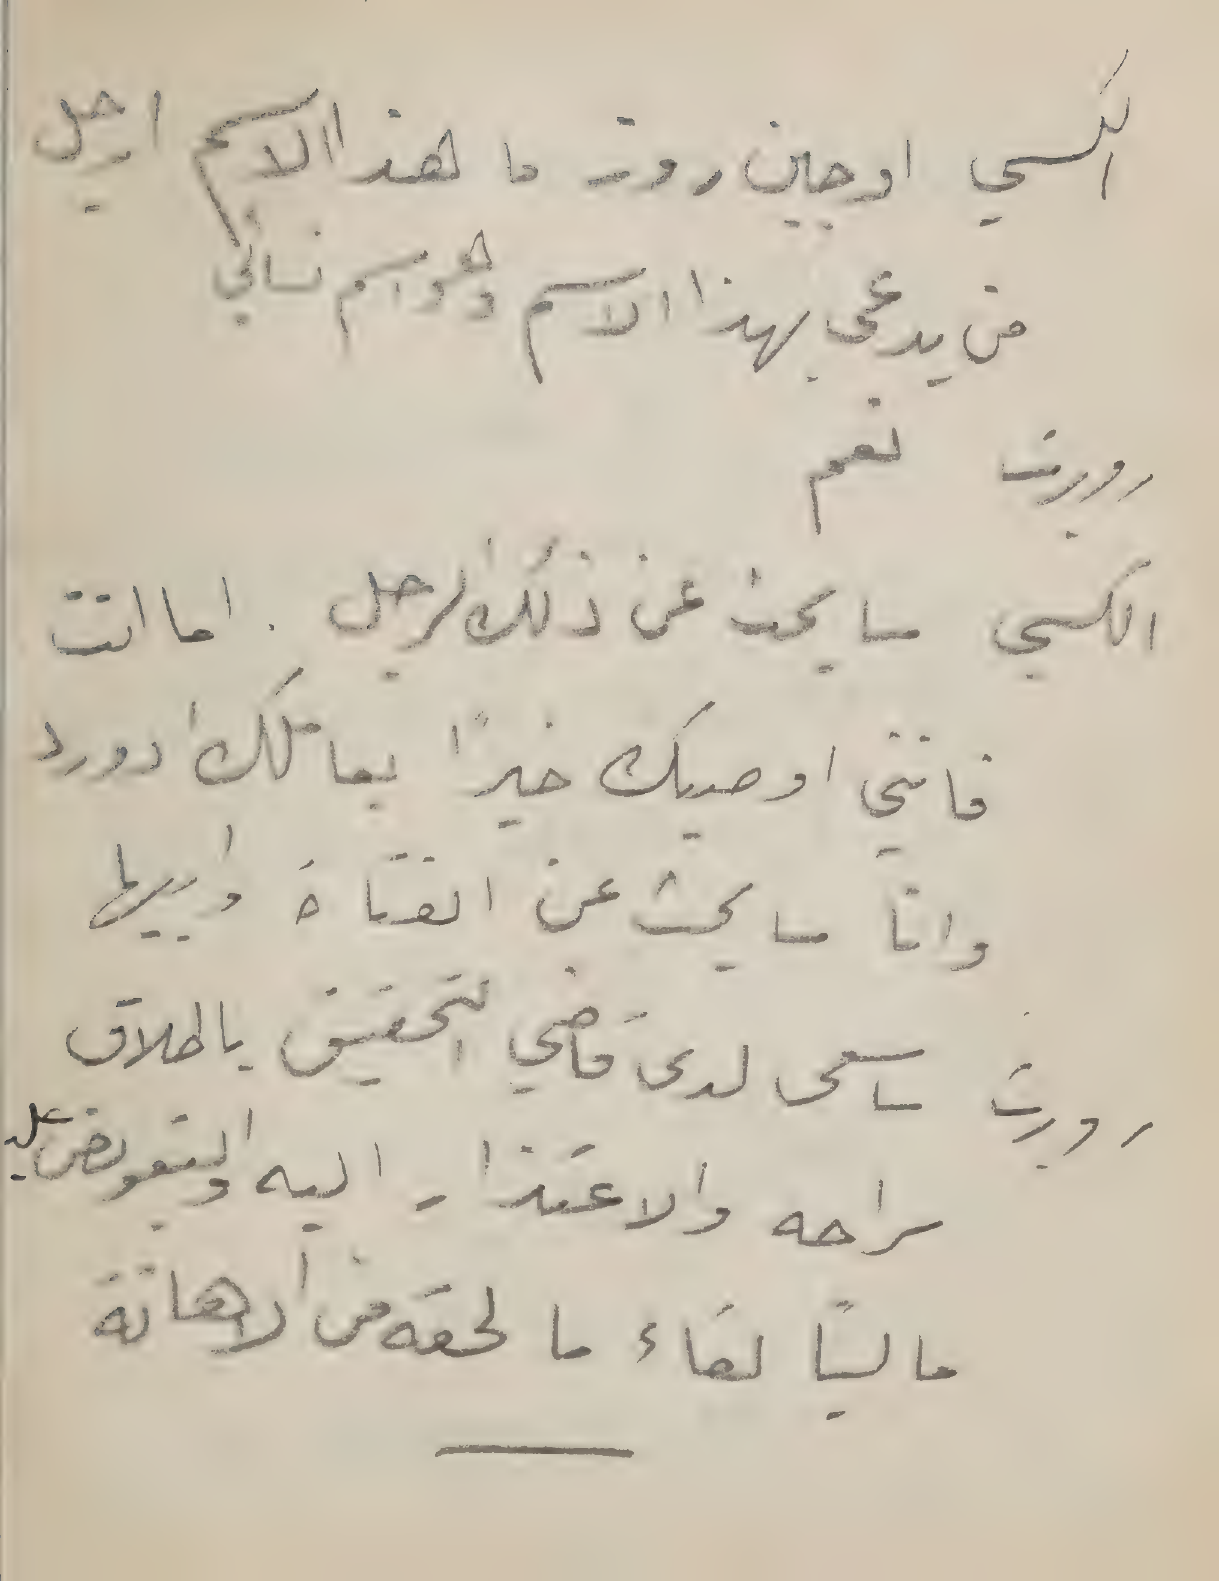 الكسي اوجين روت ما هذا الاسم ارجل
من يدعى بهذا الاسم وهو اسم نسائي
روبرت نعم
الكسي سابحث عن ذلك الرجل . اما انت
فانني اوصيك خيرًا بعاملك ادورد
وانا سابحث عن الفتاة وابيها
روبرت ساسعى لدى قاضي التحقيق باطلاق
سراحه والاعتذار اليه والتعويض عليه
ماليًا لقاء ما لحقه من الاهانة